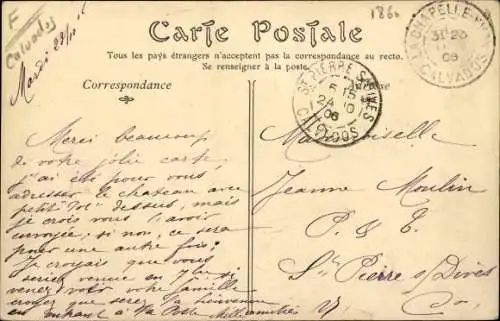 F
Calvados
Mardi 23/10
186
Carte Postale
Tous les pays étrangers n'acceptent pas la correspondance au recto.
Se renseigner à la poste.
Correspondance
Adresse
LA CHAPELLE
23
06
CALVADOS
ST PIERRE S/ DIVES
24 10
06
CALVADOS
Merci beaucoup
de votre jolie carte,
j'ai été pour vous
adresser le château avec
petit dessus, mais
je crois vous l'avoir
envoyée; si non, ce sera
pour une autre fois.
Je croyais que vous
seriez venue en si
venez voir votre famille
croyez que serez la bienvenue
en entrant à la Poste Mille amitiés
Mademoiselle
Jeanne Moulin
P. & T.
St Pierre s/ Dives
Co.